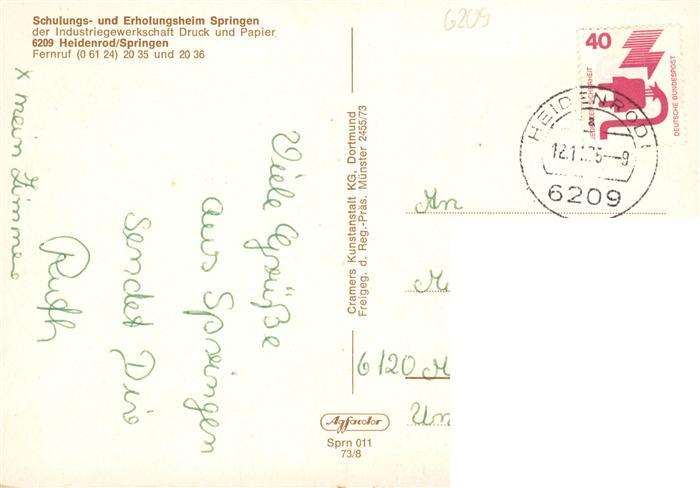 Schulungs- und Erholungsheim Springen
der Industriegewerkschaft Druck und Papier
6209 Heidenrod/Springen
Fernruf (0 61 24) 20 35 und 20 36
6209
x mein Zimmer
Viele Grüße
aus Springen
sendet Dir
Ruth
Cramers Kunstanstalt KG, Dortmund
Freigeg. d. Reg.-Präs. Münster 2455/73
Agfacolor
Sprn 011
73/8
40
JEDERZEIT SICHERHEIT
DEUTSCHE BUNDESPOST
HEIDENROD 1
-9
6209
An
6120